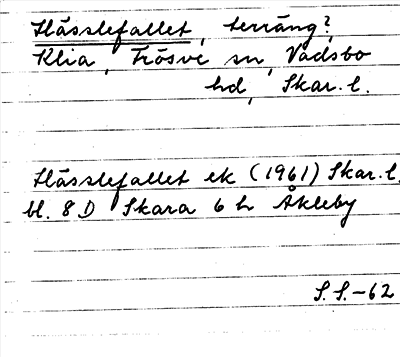 Hässlefallet, terräng?,
Klia, Frösve sn, Vadsbo
hd, Skar. l.
Hässlefallet ek (1961) Skar. l.
bl. 8 D Skara 6 h Åkleby
S. S. -62